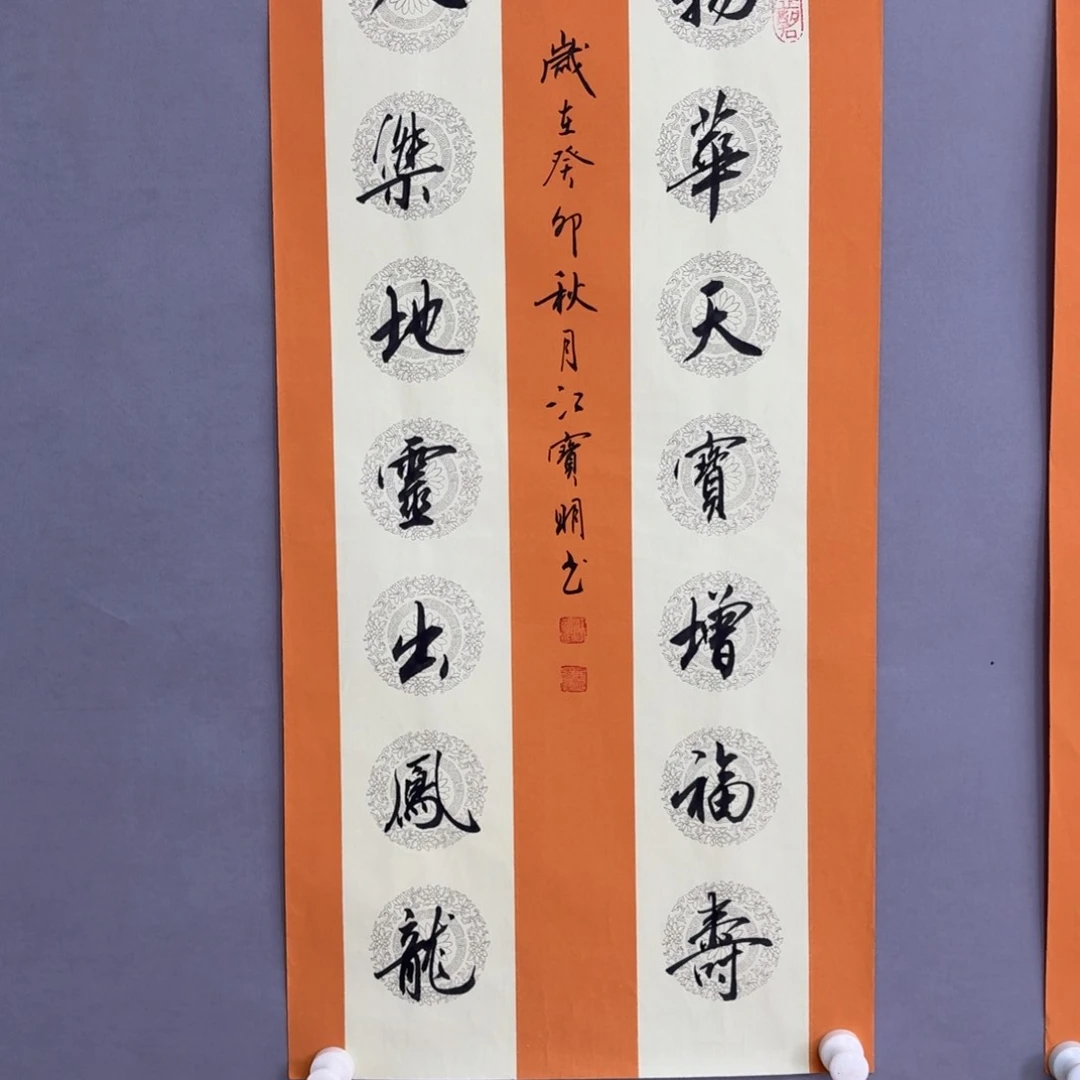 物華天寶增福壽
歲在癸卯秋月江寶明书
人傑地靈出鳳龍